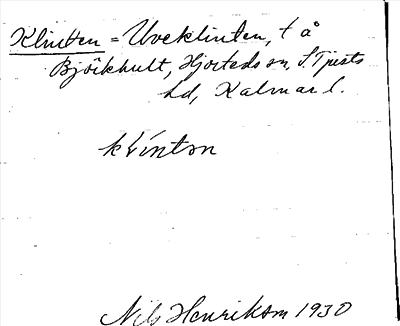 Klinten = Uveklinten, t å
Björkhult, Hjorteds sn, S. Tjusts
hd, Kalmar l.
klíntɒn
Nils Henrikson 1930